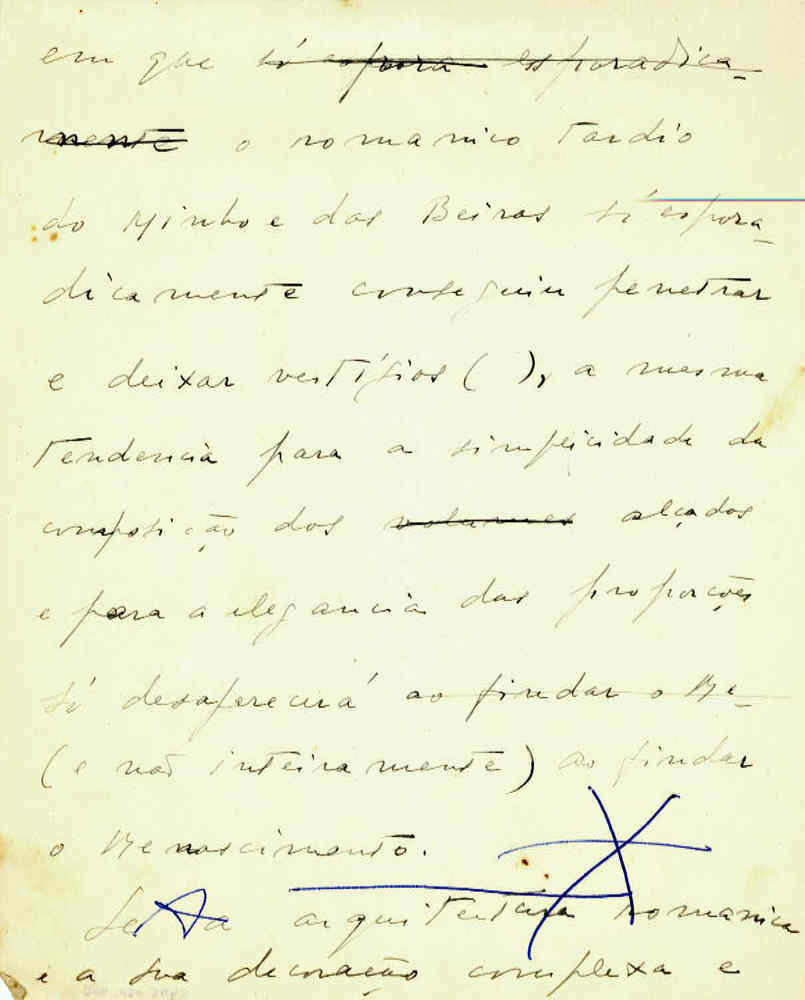 em que só espora esporadica-
mente o romanico tardio
do Minho e das Beiras só espora-
dicamente conseguiu penetrar
e deixar vestígios ( ), a mesma
tendencia para a simplicidade da
composição dos volumes alçados
e para a elegancia das proporções
só desaparecerá ao findar o Re-
(e não inteiramente) ao findar
o Renascimento.
Se a arquitectura romanica
e a sua decoração complexa e